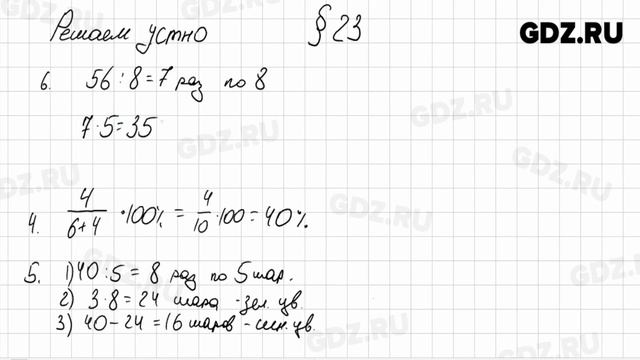 Решаем устно § 23 GDZ.RU
6. 56 : 8 = 7 раз по 8
7 · 5 = 35
4. 4/(6+4) · 100% = 4/10 · 100 = 40%.
5. 1) 40 : 5 = 8 раз по 5 шар.
2) 3 · 8 = 24 шара - зел. цв.
3) 40 - 24 = 16 шаров - син. цв.
GDZ.RU
GDZ.RU
GDZ.RU
GDZ.RU
GDZ.RU
GDZ.RU
GDZ.RU